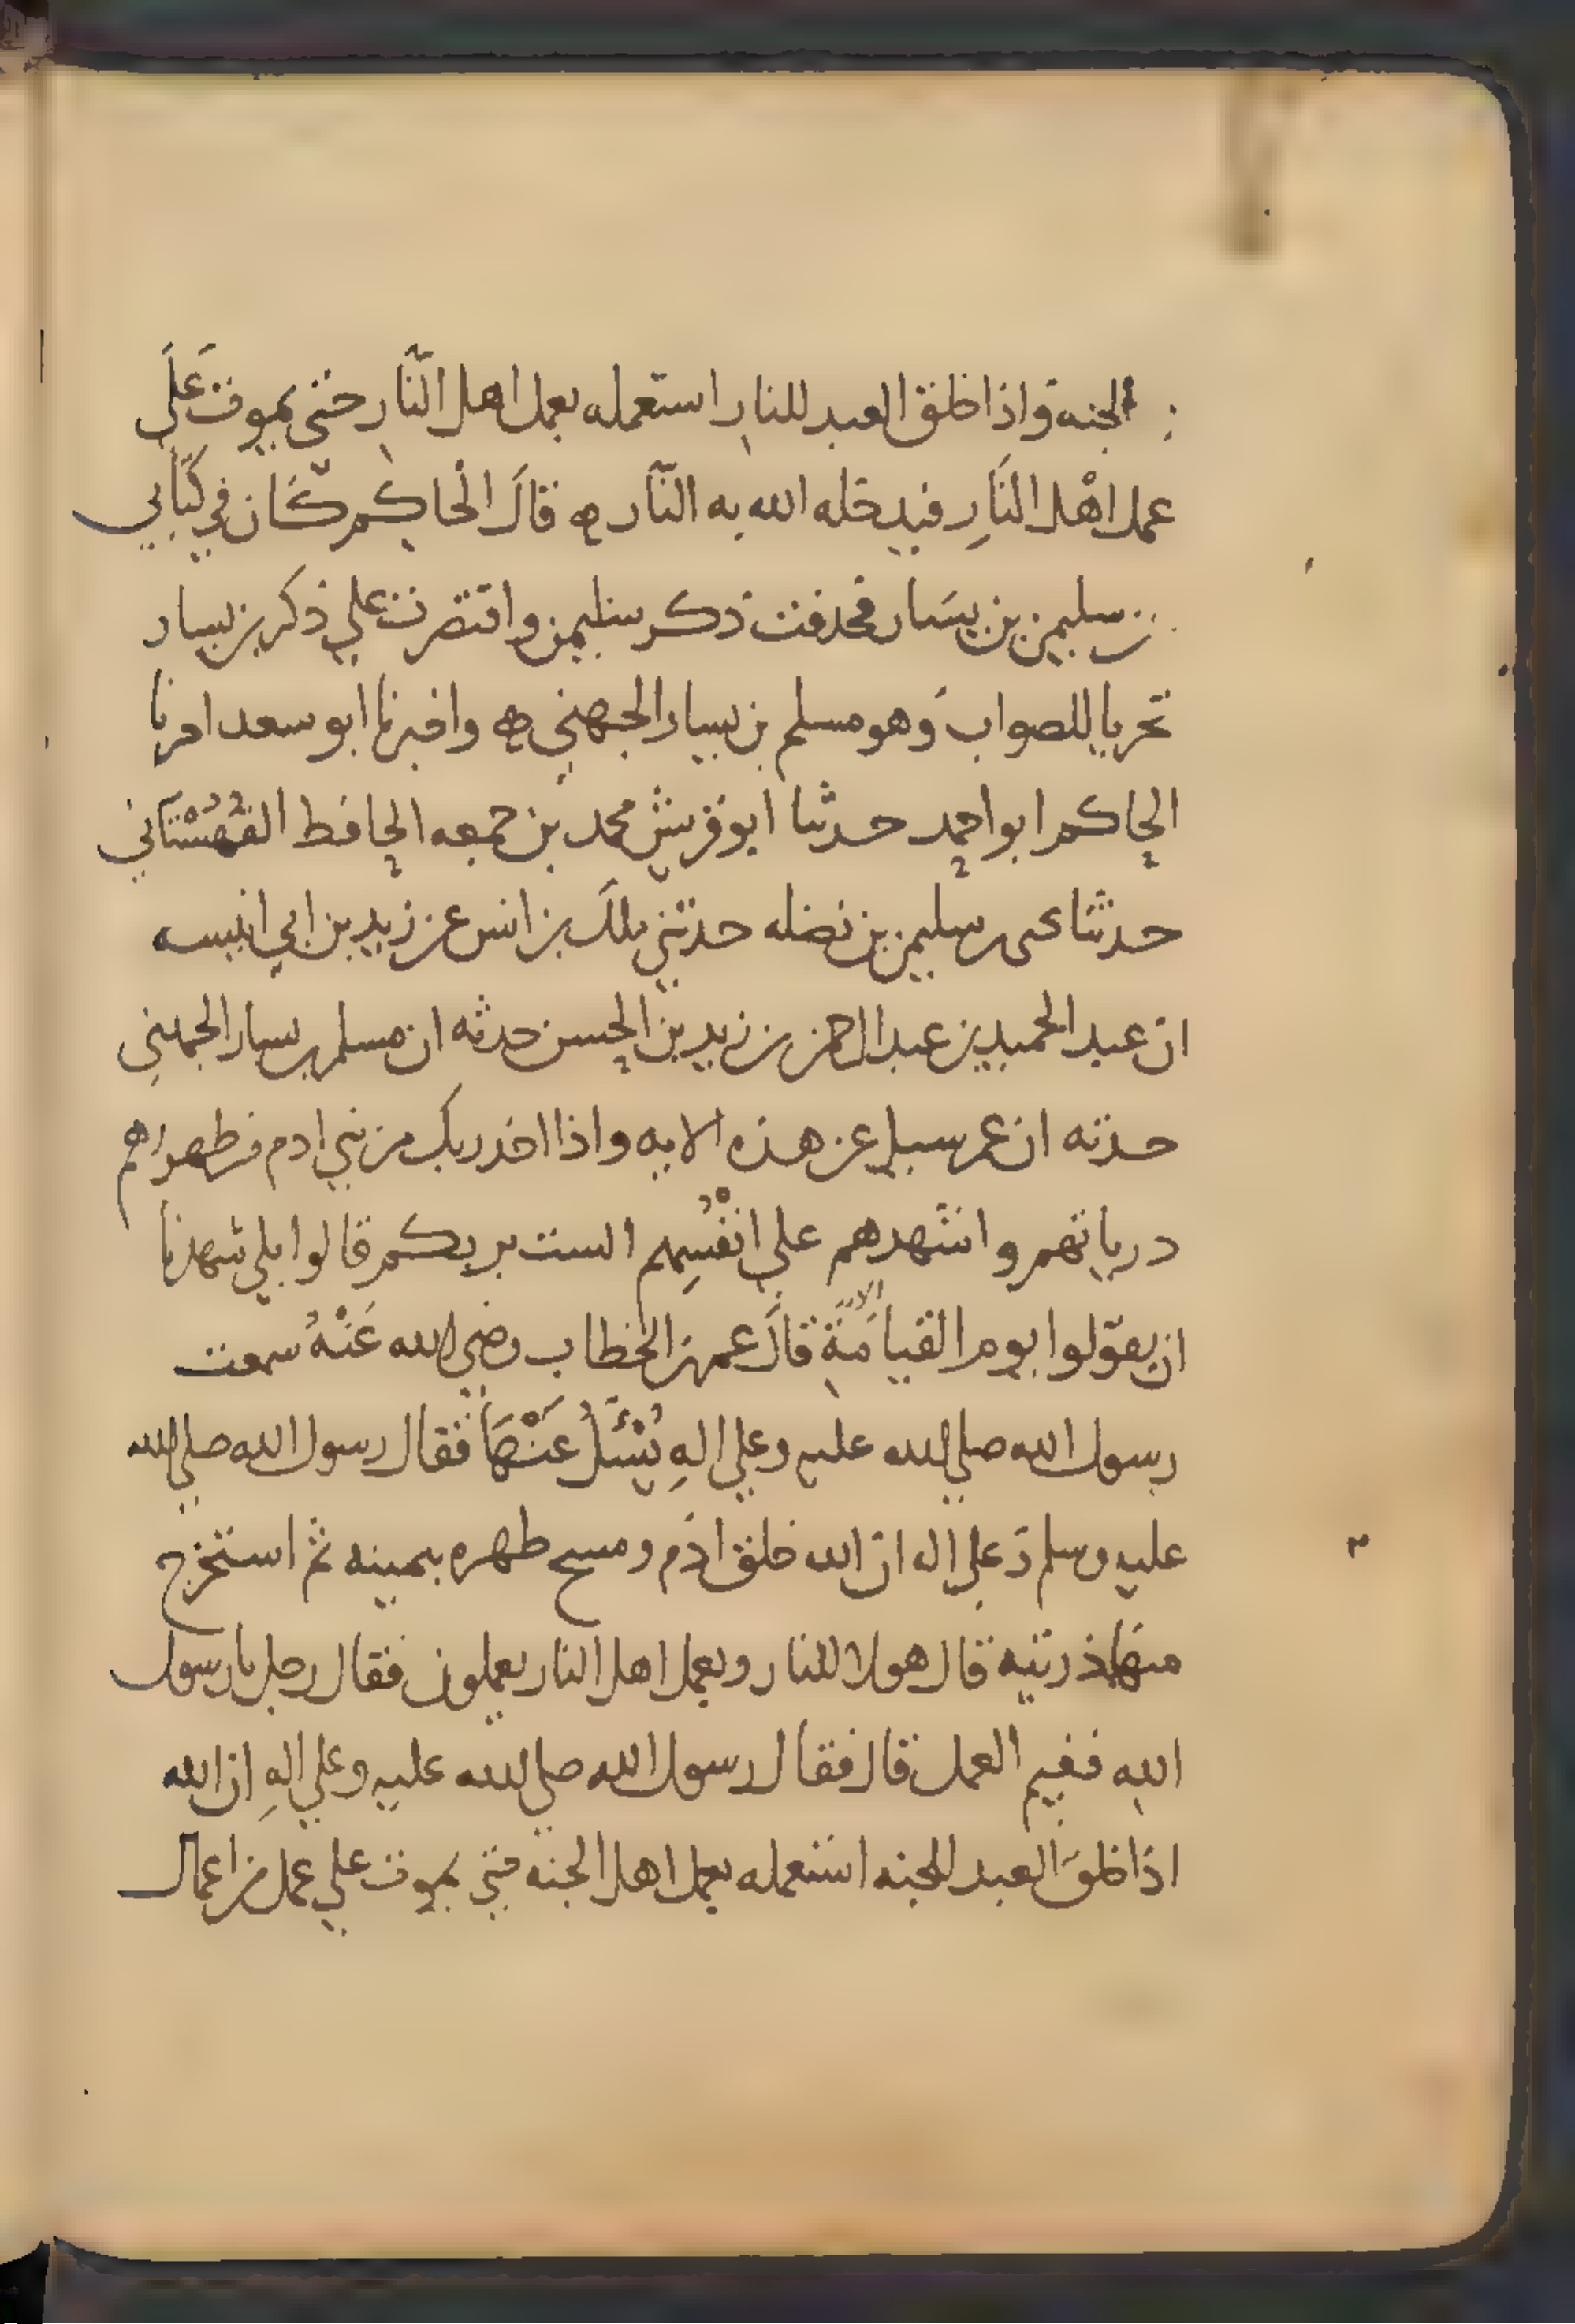 الجنه واذا خلق العبد للنار استعمله بعمل اهل النار حتى يموت على
عمل اهل النار فيدخله الله به النار ه قال الحاكم كان في كتابي
سليمن بن يسار فحذفت ذكر سليمن واقتصرت علي ذكر بن يسار
تحريا للصواب وهو مسلم بن يسار الجهني ه واخبرنا ابو سعد اخبرنا
الحاكم ابو احمد حدثنا ابو قريش محمد بن جمعه الحافظ القهستاني
حدثنا يحيى بن سليمن بن نضله حدثني ملك بن انس عن زيد بن ابي انيسه
ان عبد الحميد بن عبد الرحمن بن زيد بن الحسن حدثه ان مسلم بن يسار الجهني
حدثه ان عمر سيل عن هذه الايه واذا اخذ ربك من بني ادم من ظهورهم
درياتهم واشهدهم علي انفسهم الست بربكم قالوا بلي شهدنا
ان يقولوا يوم القيامة الاية قال عمر بن الخطاب رضي الله عنه سمعت
رسول الله صلي الله عليه وعلي اله يسئل عنها فقال رسول الله صلي الله
عليه وسلم وعلي اله ان الله خلق ادم ومسح ظهره بيمينه ثم استخرج
منها ذريته قال هولا للنار وبعمل اهل النار يعملون فقال رجل يا رسول
الله ففيم العمل قال فقال رسول الله صلي الله عليه وعلي اله ان الله
اذا خلق العبد للجنه استعمله بعمل اهل الجنه حتى يموت علي عمل من اعمال